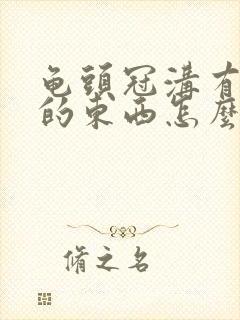 龟頭冠溝有
的東西怎麼
脩之名